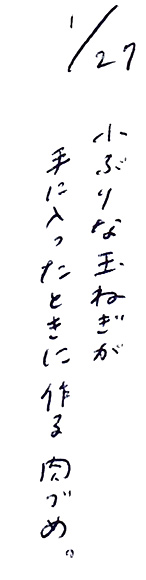 1/27
小ぶりな玉ねぎが
手に入ったときに作る肉づめ。